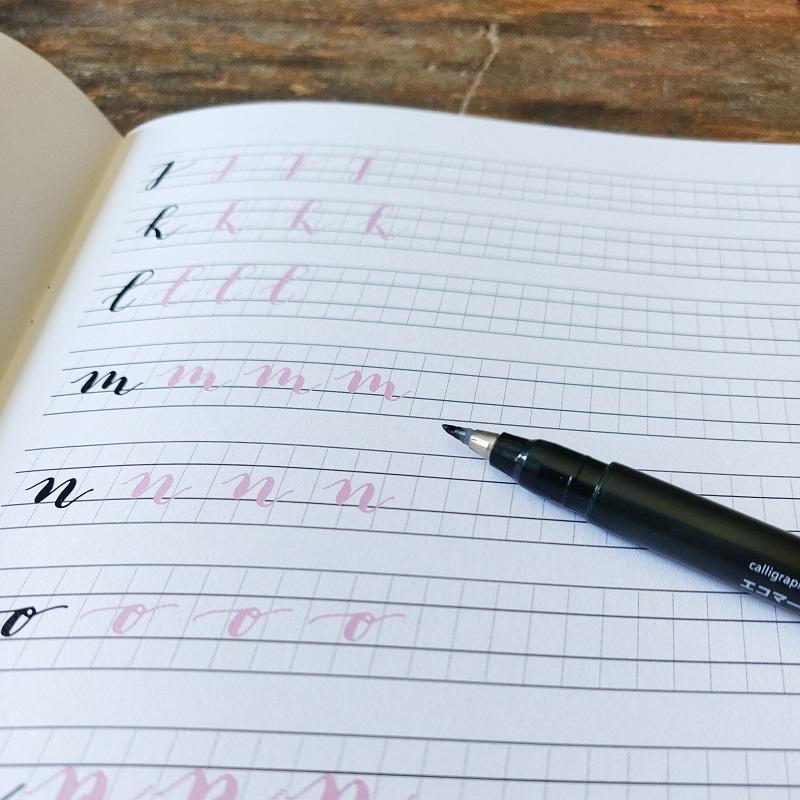 j j j j
k k k k
l l l l
m m m m
n n n n
o o o o
calligrap
エコマー